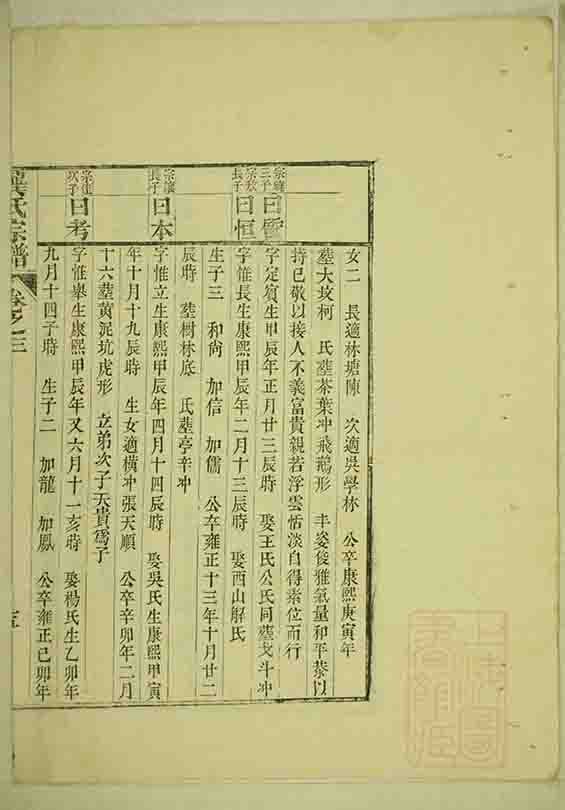 女二 長適林塘陳 次適吳學林 公卒康熙庚寅年
塟大坟柯 氏塟茶葉冲飛鵝形 丰姿俊雅氣量和平恭以
持已敬以接人不義富貴親若浮雲恬淡自得素位而行
宗
三子
曰
字定賓生甲辰年正月廿三辰時 娶王氏公氏同塟戈斗冲
宗
長子
曰恒
字惟長生康熙甲辰年二月十三辰時 娶西山解氏
生子三 和尚 加信 加儒 公卒雍正十三年十月廿二
辰時 塟樹林底 氏塟亭辛冲
宗
長子
曰本
字惟立生康熙甲辰年四月十四辰時 娶吳氏生康熙甲寅
年十月十九辰時 生女適横冲張天順 公卒辛卯年二月
十六塟黄泥坑虎形 立弟次子天貴爲子
宗
次子
曰考
字惟舉生康熙甲辰年又六月十一亥時 娶楊氏生乙卯年
九月十四子時 生子二 加龍 加鳳 公卒雍正己卯年
氏宗譜 卷之三